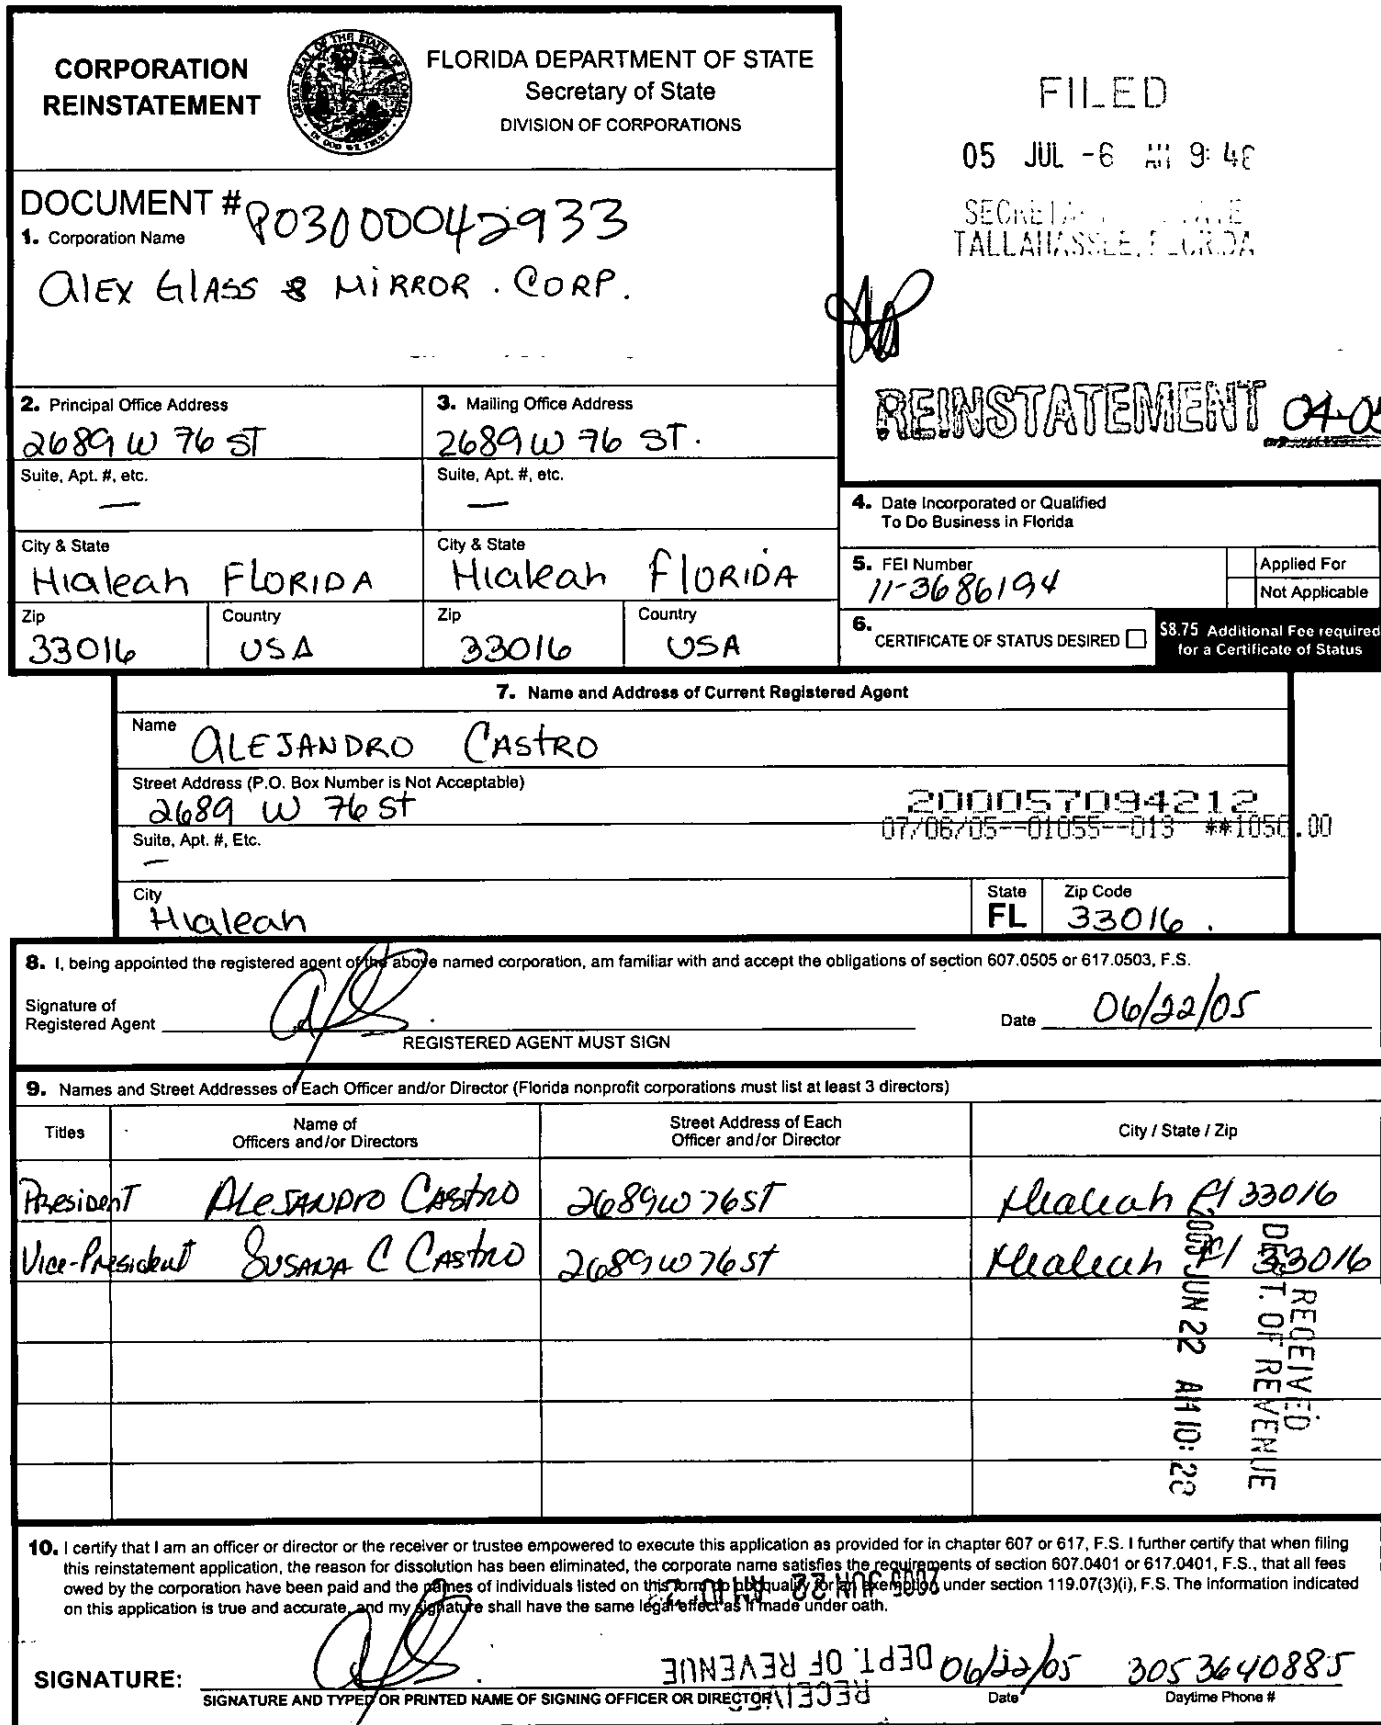 CORPORATION
REINSTATEMENT
FLORIDA DEPARTMENT OF STATE
Secretary of State
DIVISION OF CORPORATIONS
FILED
05 JUL -6 AM 9:48
TALLAHASSEE, FLORIDA
DOCUMENT # P03000042933
1. Corporation Name
Alex Glass & Mirror. Corp.
REINSTATEMENT 04-05
2. Principal Office Address
2689 W 76 ST
Suite, Apt. #, etc.
—
City & State
Hialeah FLORIDA
Zip
33016
Country
USA
3. Mailing Office Address
2689 W 76 ST.
Suite, Apt. #, etc.
—
City & State
Hialeah FLORIDA
Zip
33016
Country
USA
4. Date Incorporated or Qualified
To Do Business in Florida
5. FEI Number
11-3686194
Applied For
Not Applicable
6. CERTIFICATE OF STATUS DESIRED
$8.75 Additional Fee required
for a Certificate of Status
7. Name and Address of Current Registered Agent
Name
ALEJANDRO CASTRO
Street Address (P.O. Box Number is Not Acceptable)
2689 W 76 St
200057094212
07/06/05--01055--013 **1050.00
Suite, Apt. #, Etc.
—
City
Hialeah
State
FL
Zip Code
33016.
8. I, being appointed the registered agent of the above named corporation, am familiar with and accept the obligations of section 607.0505 or 617.0503, F.S.
Signature of
Registered Agent
REGISTERED AGENT MUST SIGN
Date 06/22/05
9. Names and Street Addresses of Each Officer and/or Director (Florida nonprofit corporations must list at least 3 directors)
Titles
Name of
Officers and/or Directors
Street Address of Each
Officer and/or Director
City / State / Zip
President Alejandro Castro 2689 W 76 ST Hialeah Fl 33016
Vice-President Susana C Castro 2689 W 76 ST Hialeah Fl 33016
RECEIVED
DEPT. OF REVENUE
2005 JUN 22 AM 10:28
10. I certify that I am an officer or director or the receiver or trustee empowered to execute this application as provided for in chapter 607 or 617, F.S. I further certify that when filing
this reinstatement application, the reason for dissolution has been eliminated, the corporate name satisfies the requirements of section 607.0401 or 617.0401, F.S., that all fees
owed by the corporation have been paid and the names of individuals listed on this form do not qualify for an exemption under section 119.07(3)(i), F.S. The information indicated
on this application is true and accurate, and my signature shall have the same legal effect as if made under oath.
RECEIVED
DEPT. OF REVENUE
SIGNATURE:
06/22/05 3053640885
SIGNATURE AND TYPED OR PRINTED NAME OF SIGNING OFFICER OR DIRECTOR
Date
Daytime Phone #